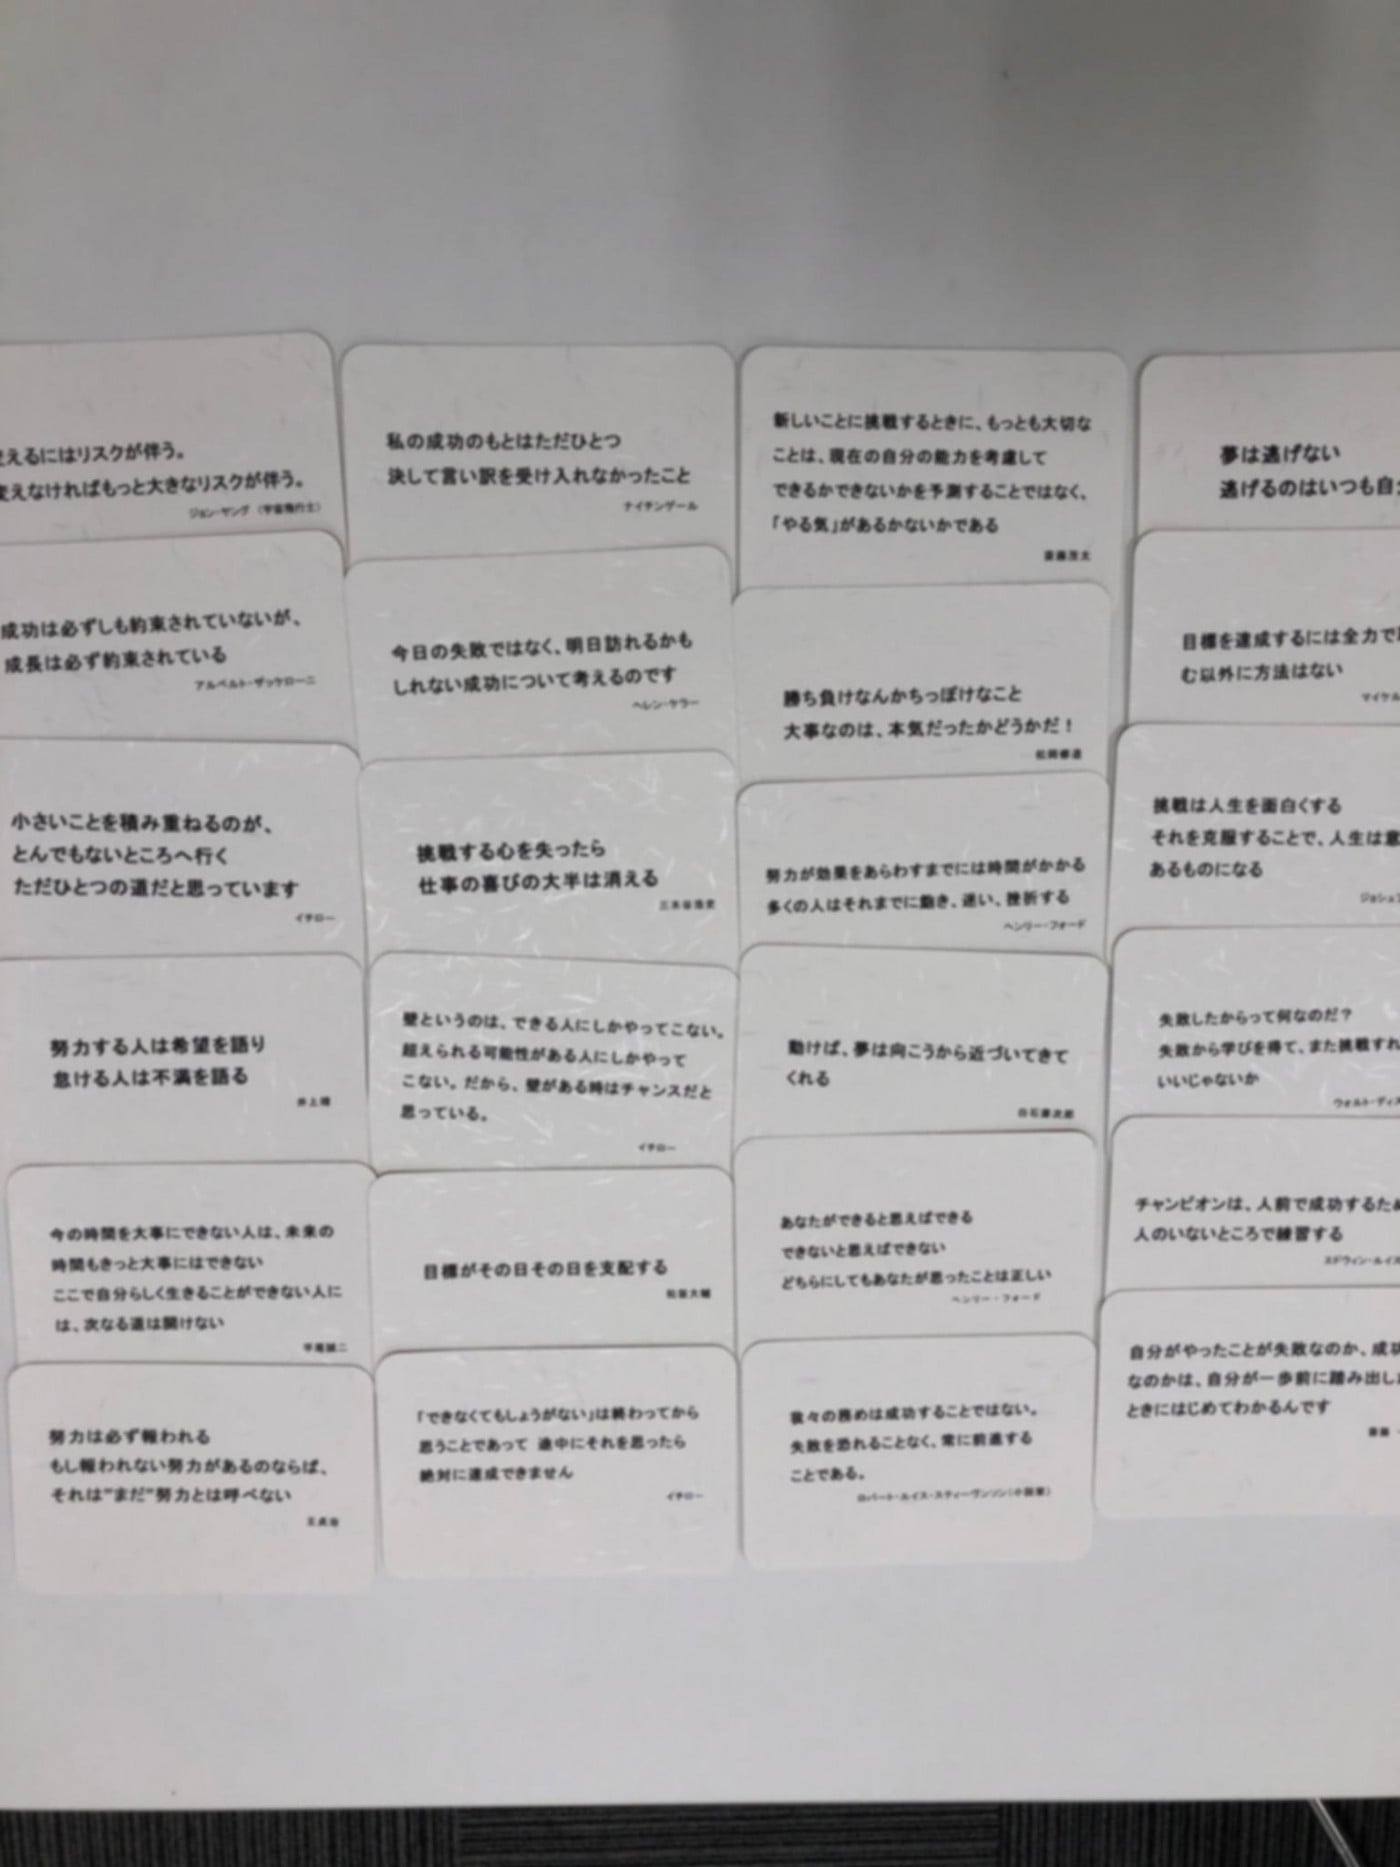 えるにはリスクが伴う。
変えなければもっと大きなリスクが伴う。
ジョン・ヤング（宇宙飛行士）
成功は必ずしも約束されていないが、
成長は必ず約束されている
アルベルト・ザッケローニ
小さいことを積み重ねるのが、
とんでもないところへ行く
ただひとつの道だと思っています
イチロー
努力する人は希望を語り
怠ける人は不満を語る
井上靖
今の時間を大事にできない人は、未来の
時間もきっと大事にはできない
ここで自分らしく生きることができない人に
は、次なる道は開けない
平尾誠二
努力は必ず報われる
もし報われない努力があるのならば、
それは"まだ"努力とは呼べない
王貞治
私の成功のもとはただひとつ
決して言い訳を受け入れなかったこと
ナイチンゲール
今日の失敗ではなく、明日訪れるかも
しれない成功について考えるのです
ヘレン・ケラー
挑戦する心を失ったら
仕事の喜びの大半は消える
三木谷浩史
壁というのは、できる人にしかやってこない。
超えられる可能性がある人にしかやって
こない。だから、壁がある時はチャンスだと
思っている。
イチロー
目標がその日その日を支配する
松坂大輔
「できなくてもしょうがない」は終わってから
思うことであって 途中にそれを思ったら
絶対に達成できません
イチロー
新しいことに挑戦するときに、もっとも大切な
ことは、現在の自分の能力を考慮して
できるかできないかを予測することではなく、
「やる気」があるかないかである
斎藤茂太
勝ち負けなんかちっぽけなこと
大事なのは、本気だったかどうかだ！
松岡修造
努力が効果をあらわすまでには時間がかかる
多くの人はそれまでに飽き、迷い、挫折する
ヘンリー・フォード
動けば、夢は向こうから近づいてきて
くれる
白石康次郎
あなたができると思えばできる
できないと思えばできない
どちらにしてもあなたが思ったことは正しい
ヘンリー・フォード
我々の務めは成功することではない。
失敗を恐れることなく、常に前進する
ことである。
ロバート・ルイス・スティーヴンソン（小説家）
夢は逃げない
逃げるのはいつも自
目標を達成するには全力で
む以外に方法はない
マイケル
挑戦は人生を面白くする
それを克服することで、人生は意
あるものになる
ジョシュ
失敗したからって何なのだ？
失敗から学びを得て、また挑戦すれ
いいじゃないか
ウォルト・ディス
チャンピオンは、人前で成功するため
人のいないところで練習する
エドウィン・ルイス
自分がやったことが失敗なのか、成功
なのかは、自分が一歩前に踏み出し
ときにはじめてわかるんです